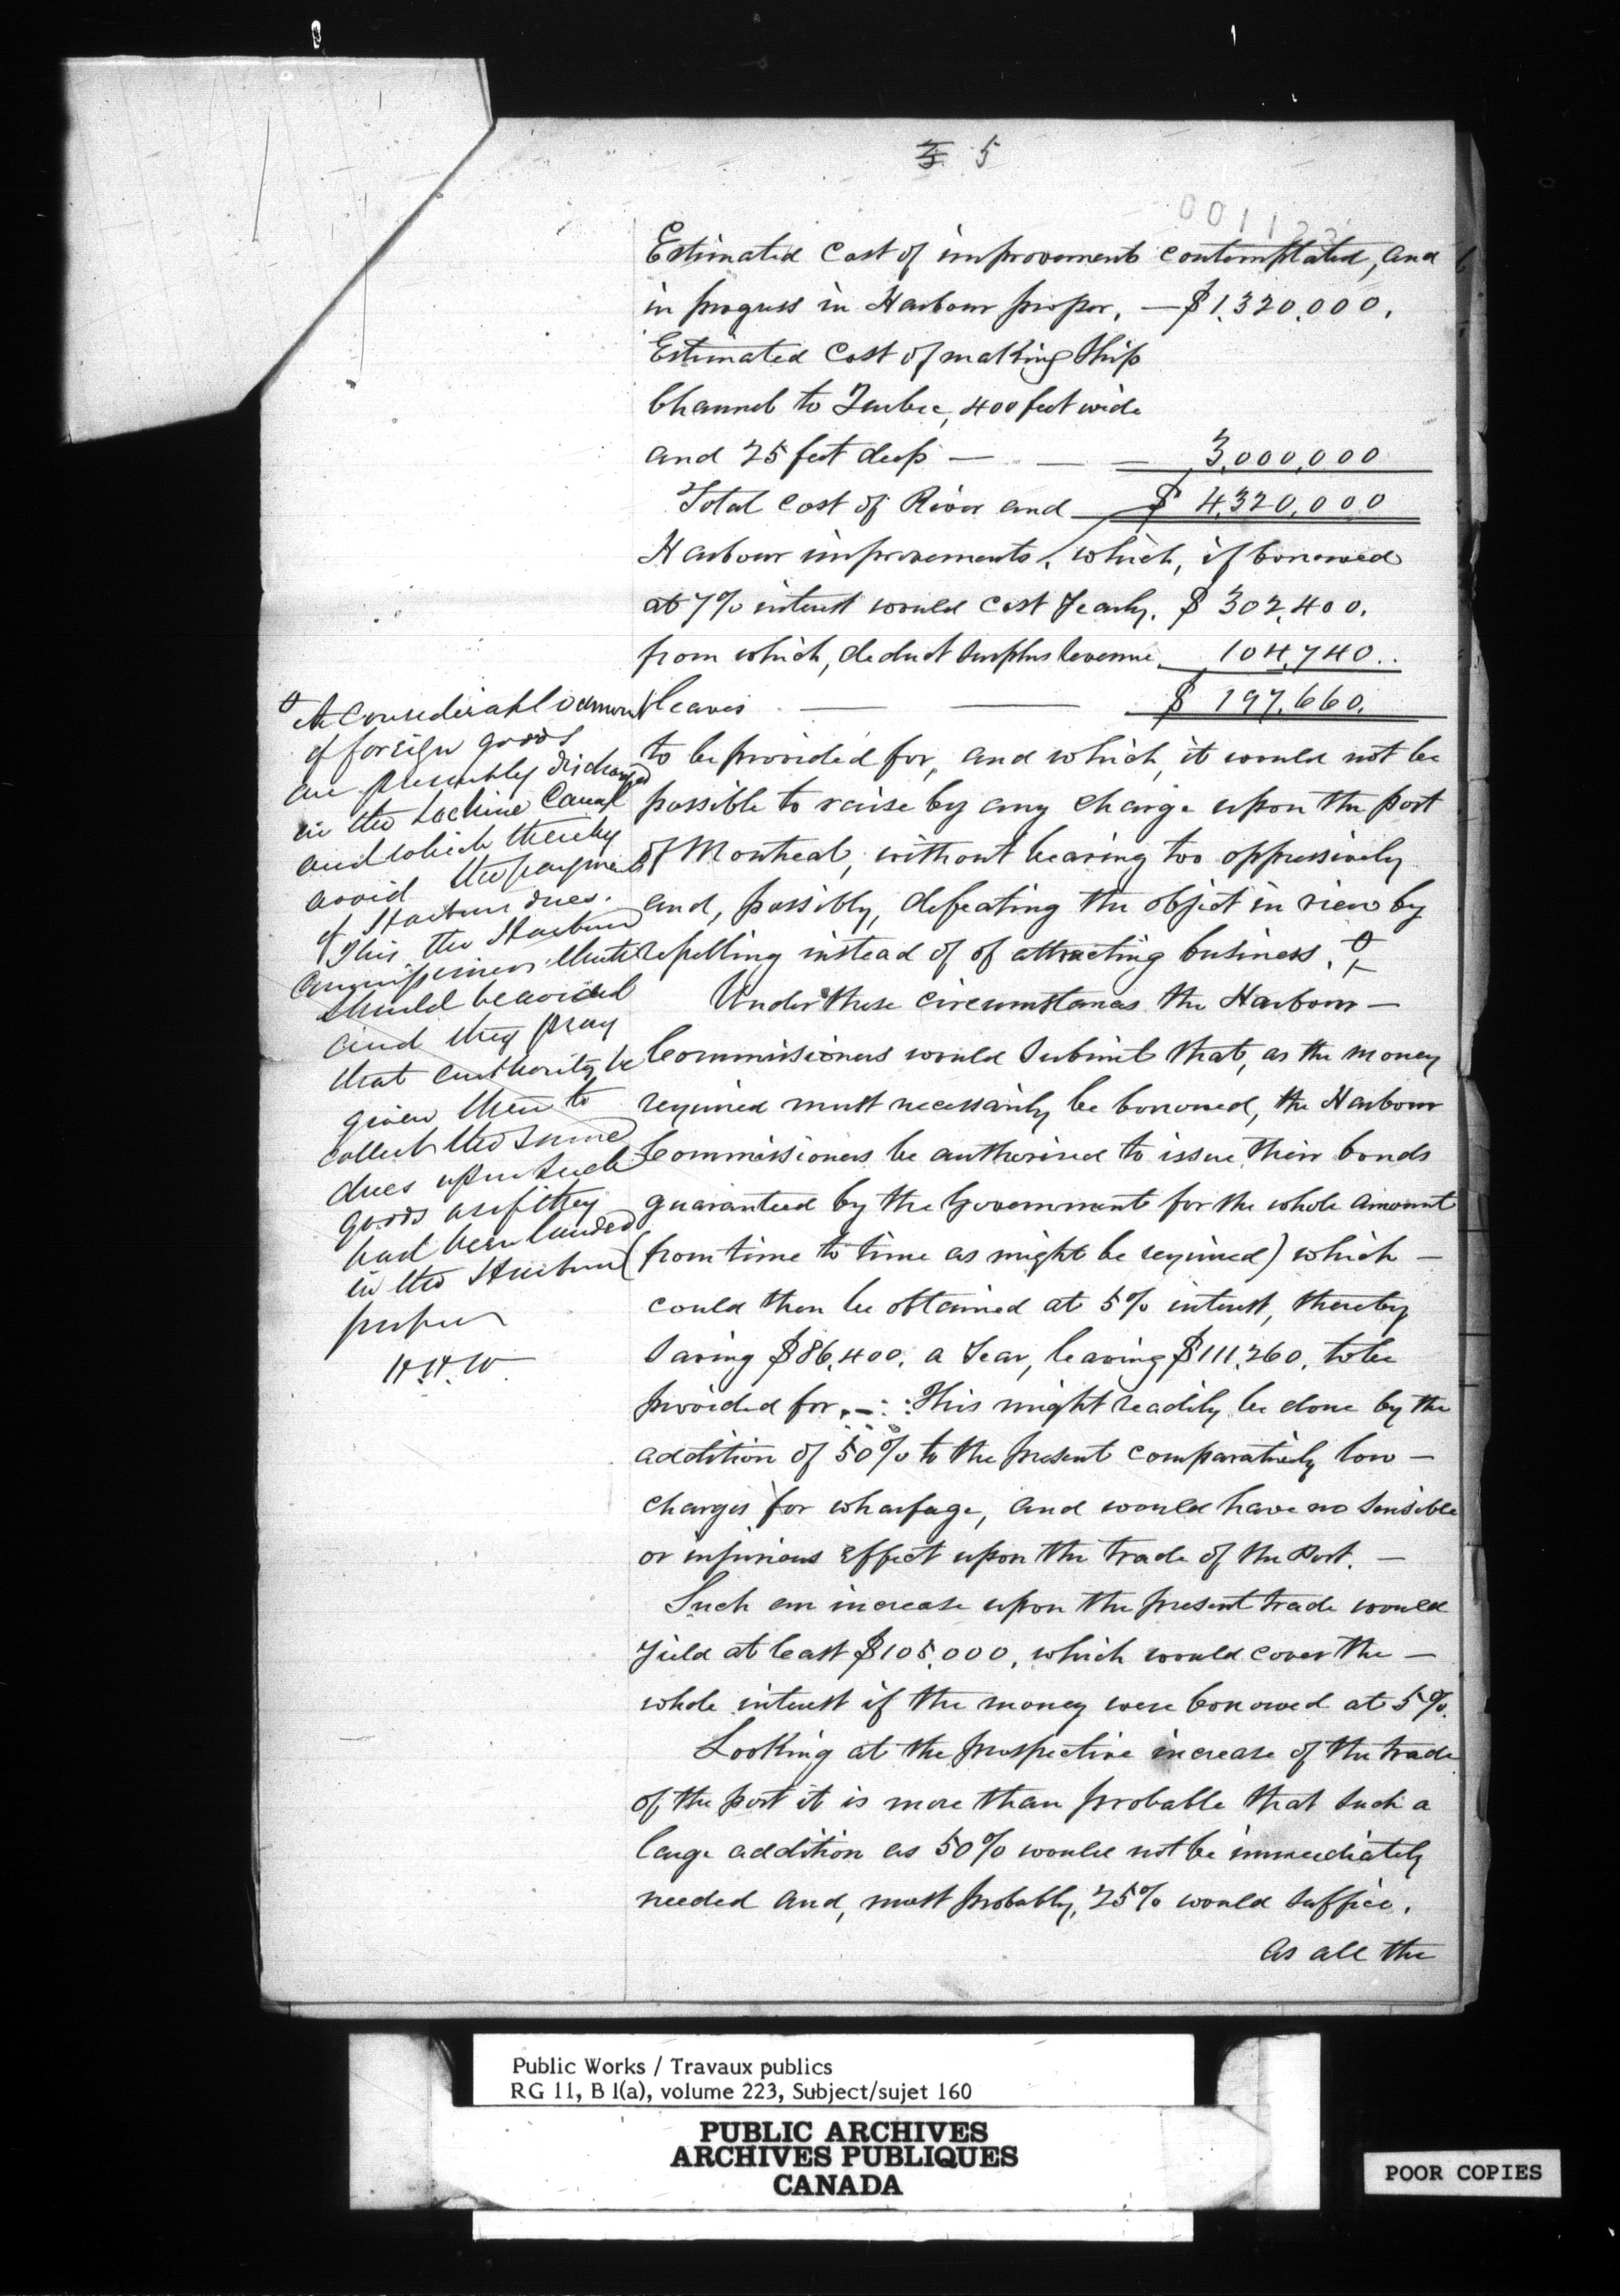 5
Estimated Cost of improvements contemplated, and
in progress in Harbour proper, — $1,320,000.
Estimated Cost of making Ship
Channel to Quebec, 400 feet wide
and 25 feet deep — — — 3,000,000
Total Cost of River and $ 4,320,000
Harbour improvements, which, if borrowed
at 7% interest would cost Yearly. $ 302,400.
from which, deduct Surplus Revenue 104,740..
leaves — — $ 197,660.
to be provided for, and which, it would not be
possible to raise by any charge upon the port
of Montreal, without bearing too oppressively
and, possibly, defeating the object in view by
repelling instead of of attracting business.
Under these circumstances the Harbour —
Commissioners would Submit that, as the money
required must necessarily be borrowed, the Harbour
Commissioners be authorised to issue their bonds
guaranteed by the Government for the whole amount
(from time to time as might be required) which —
could then be obtained at 5% interest, thereby
Saving $86,400. a Year, leaving $111,260. to be
provided for. — This might readily be done by the
addition of 50% to the present comparatively low —
charges for wharfage, and would have no Sensible
or injurious Effect upon the trade of the Port. —
Such an increase upon the present trade would
Yield at least $105,000, which would cover the —
whole interest if the money were borrowed at 5%.
Looking at the prospective increase of the trade
of the port it is more than probable that Such a
large addition as 50% would not be immediately
needed and, most probably, 25% would Suffice.
As all the
A Considerable amount
of foreign goods
are presently discharged
in the Lachine Canal
and which thereby
avoid the payment
of Harbour dues.
This the Harbour
Commissioners think
should be avoided
and they pray
that authority be
given them to
collect the same
dues upon such
goods as if they
had been landed
in the Harbour
proper
H.H.W.
Public Works / Travaux publics
RG 11, B 1(a), volume 223, Subject/sujet 160
PUBLIC ARCHIVES
ARCHIVES PUBLIQUES
CANADA
POOR COPIES